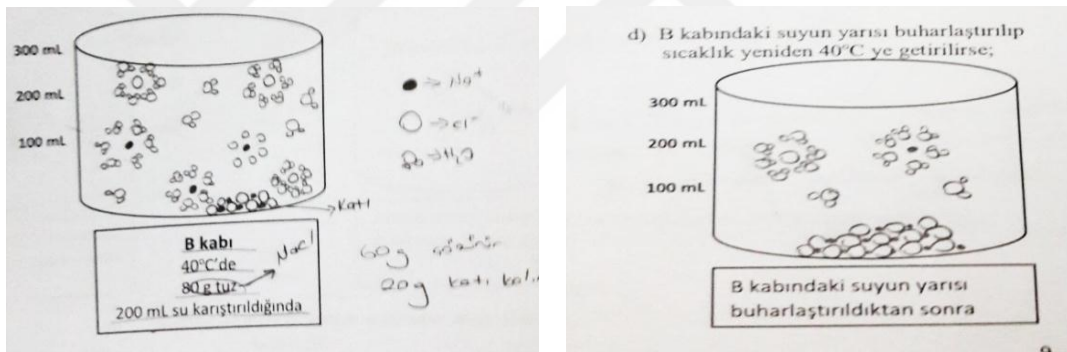 300 mL
200 mL
100 mL
→ Na⁺
→ Cl⁻
→ H₂O
→ Katı
B kabı
40°C'de
80 g tuz → NaCl
200 mL su karıştırıldığında
60g çözünür
20g katı kalır
d) B kabındaki suyun yarısı buharlaştırılıp
sıcaklık yeniden 40°C ye getirilirse;
300 mL
200 mL
100 mL
B kabındaki suyun yarısı
buharlaştırıldıktan sonra